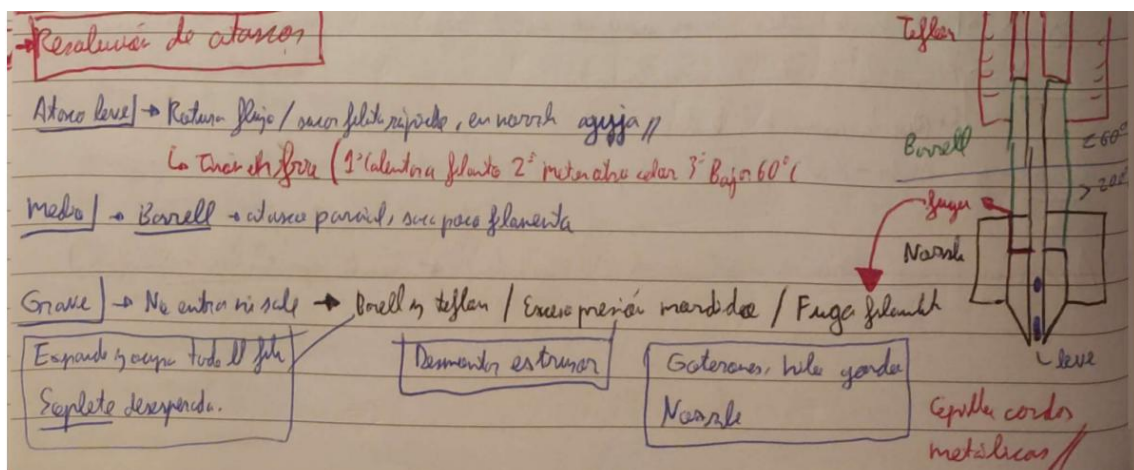 → Resolución de atascos
Atasco leve → Rotura flujo / sacar filato rápido, en nozzle aguja //
↳ Tirar en frío (1º Calentar a filanto 2º meter otro color 3º Bajar 60º C
Medio → Barrell → atasco parcial, saca poco filamento
Grave → No entra ni sale → Barell y teflon / Exceso presión mordida / Fuga
Expande y ocupa todo el
Soplete desesperada.
Desmontar extrusor
Goterones, hilo gordo
Nozzle
Teflon
Barrell
<60º
>200
fuga
Nozzle
leve
Cepillo cerdas
metálicas //